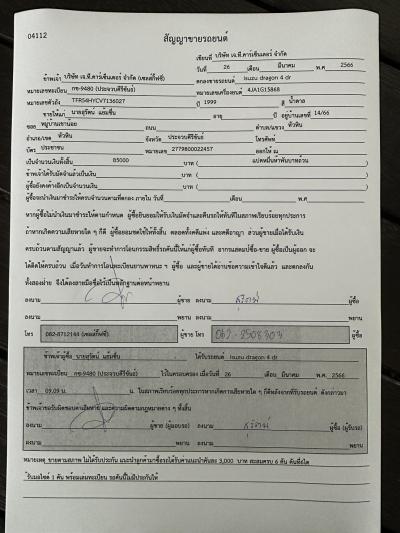 04112
สัญญาขายรถยนต์
เขียนที่ บริษัท เจ.พี.คาร์เซ็นเตอร์ จำกัด
วันที่ 26 เดือน มีนาคม พ.ศ. 2566
ข้าพเจ้า บริษัท เจ.พี.คาร์เซ็นเตอร์ จำกัด (เซลล์กีฟซี่) ตกลงขายรถยนต์ Isuzu dragon 4 dr
หมายเลขทะเบียน กข-9480 (ประจวบคีรีขันธ์) หมายเลขเครื่องยนต์ 4JA1G15868
หมายเลขตัวถัง TFR54HYCVT136027 ปี 1999 สี น้ำตาล
ขายให้แก่ นายสุรัตน์ แย้มชื่น อายุ ปี อยู่บ้านเลขที่ 14/66
ซอย หมู่บ้านเขาน้อย ถนน ตำบล/แขวง หัวหิน
อำเภอ/เขต หัวหิน จังหวัด ประจวบคีรีขันธ์ โทรศัพท์
บัตร ประชาชน หมายเลข 2779800022457 ออกให้ ณ
เป็นจำนวนเงินทั้งสิ้น 85000 บาท ( แปดหมื่นห้าพันบาทถ้วน
ข้าพเจ้าได้รับมัดจำแล้วเป็นเงิน บาท ( )
ผู้ซื้อยังคงค้างอีกเป็นจำนวนเงิน บาท ( )
ผู้ซื้อจะนำเงินมาชำระให้ครบจำนวนตามที่ตกลง ภายใน วันที่ เดือน พ.ศ.
หากผู้ซื้อไม่นำเงินมาชำระให้ตามกำหนด ผู้ซื้อยินยอมให้ริบเงินมัดจำและคืนรถให้ทันทีในสภาพเรียบร้อยทุกประการ
ถ้าหากเกิดความเสียหายใด ๆ ก็ดี ผู้ซื้อยอมชดใช้ให้ทั้งสิ้น ตลอดทั้งคดีแพ่ง และคดีอาญา ส่วนผู้ขายเมื่อได้รับเงิน
ครบถ้วนตามสัญญาแล้ว ผู้ขายจะทำการโอนกรรมสิทธิ์รถคันนี้ให้แก่ผู้ซื้อทันที อากรแสตมป์ซื้อ-ขาย ผู้ซื้อเป็นผู้ออก จะ
ได้คิดให้ครบถ้วน เมื่อวันทำการโอนทะเบียนยานพาหนะ ฯ ผู้ซื้อ และผู้ขายได้อ่านข้อความเข้าใจดีแล้ว และตกลงกัน
ทั้งสองฝ่าย จึงได้ลงลายมือชื่อไว้เป็นหลักฐานต่อหน้าพยาน
ลงนาม ผู้ขาย ลงนาม สุรัตน์ ผู้ซื้อ
ลงนาม พยาน ลงนาม พยาน
โทร 082-8712144 (เซลล์กีฟซี่) ผู้ขาย โทร ผู้ซื้อ
ข้าพเจ้าผู้ซื้อ นายสุรัตน์ แย้มชื่น ได้รับรถยนต์ Isuzu dragon 4 dr
หมายเลขทะเบียน กข-9480 (ประจวบคีรีขันธ์) ไว้ในครอบครอง เมื่อวันที่ 26 เดือน มีนาคม พ.ศ. 2566
เวลา 09.09 น. น. ในสภาพเรียบร้อยทุกประการหากเกิดการเสียหายใด ๆ ก็ดีหลังจากที่รับรถยนต์ ดังกล่าวมา
ข้าพเจ้าขอรับผิดชอบความเสียหาย และความผิดตามกฎหมายต่าง ๆ ทั้งสิ้น
ลงนาม ผู้ขาย (ผู้มอบรถ) ลงนาม สุรัตน์ ผู้ซื้อ (ผู้รับรถ)
ลงนาม พยาน ลงนาม พยาน
หมายเหตุ ขายตามสภาพ ไม่ได้รับประกัน แนะนำลูกค้ามาซื้อรถได้รับค่าแนะนำคันละ 3,000 บาท สะสมครบ 6 คัน
รับมอไซด์ 1 คัน พร้อมเล่มทะเบียน รถคันนี้ไม่มีประกันให้